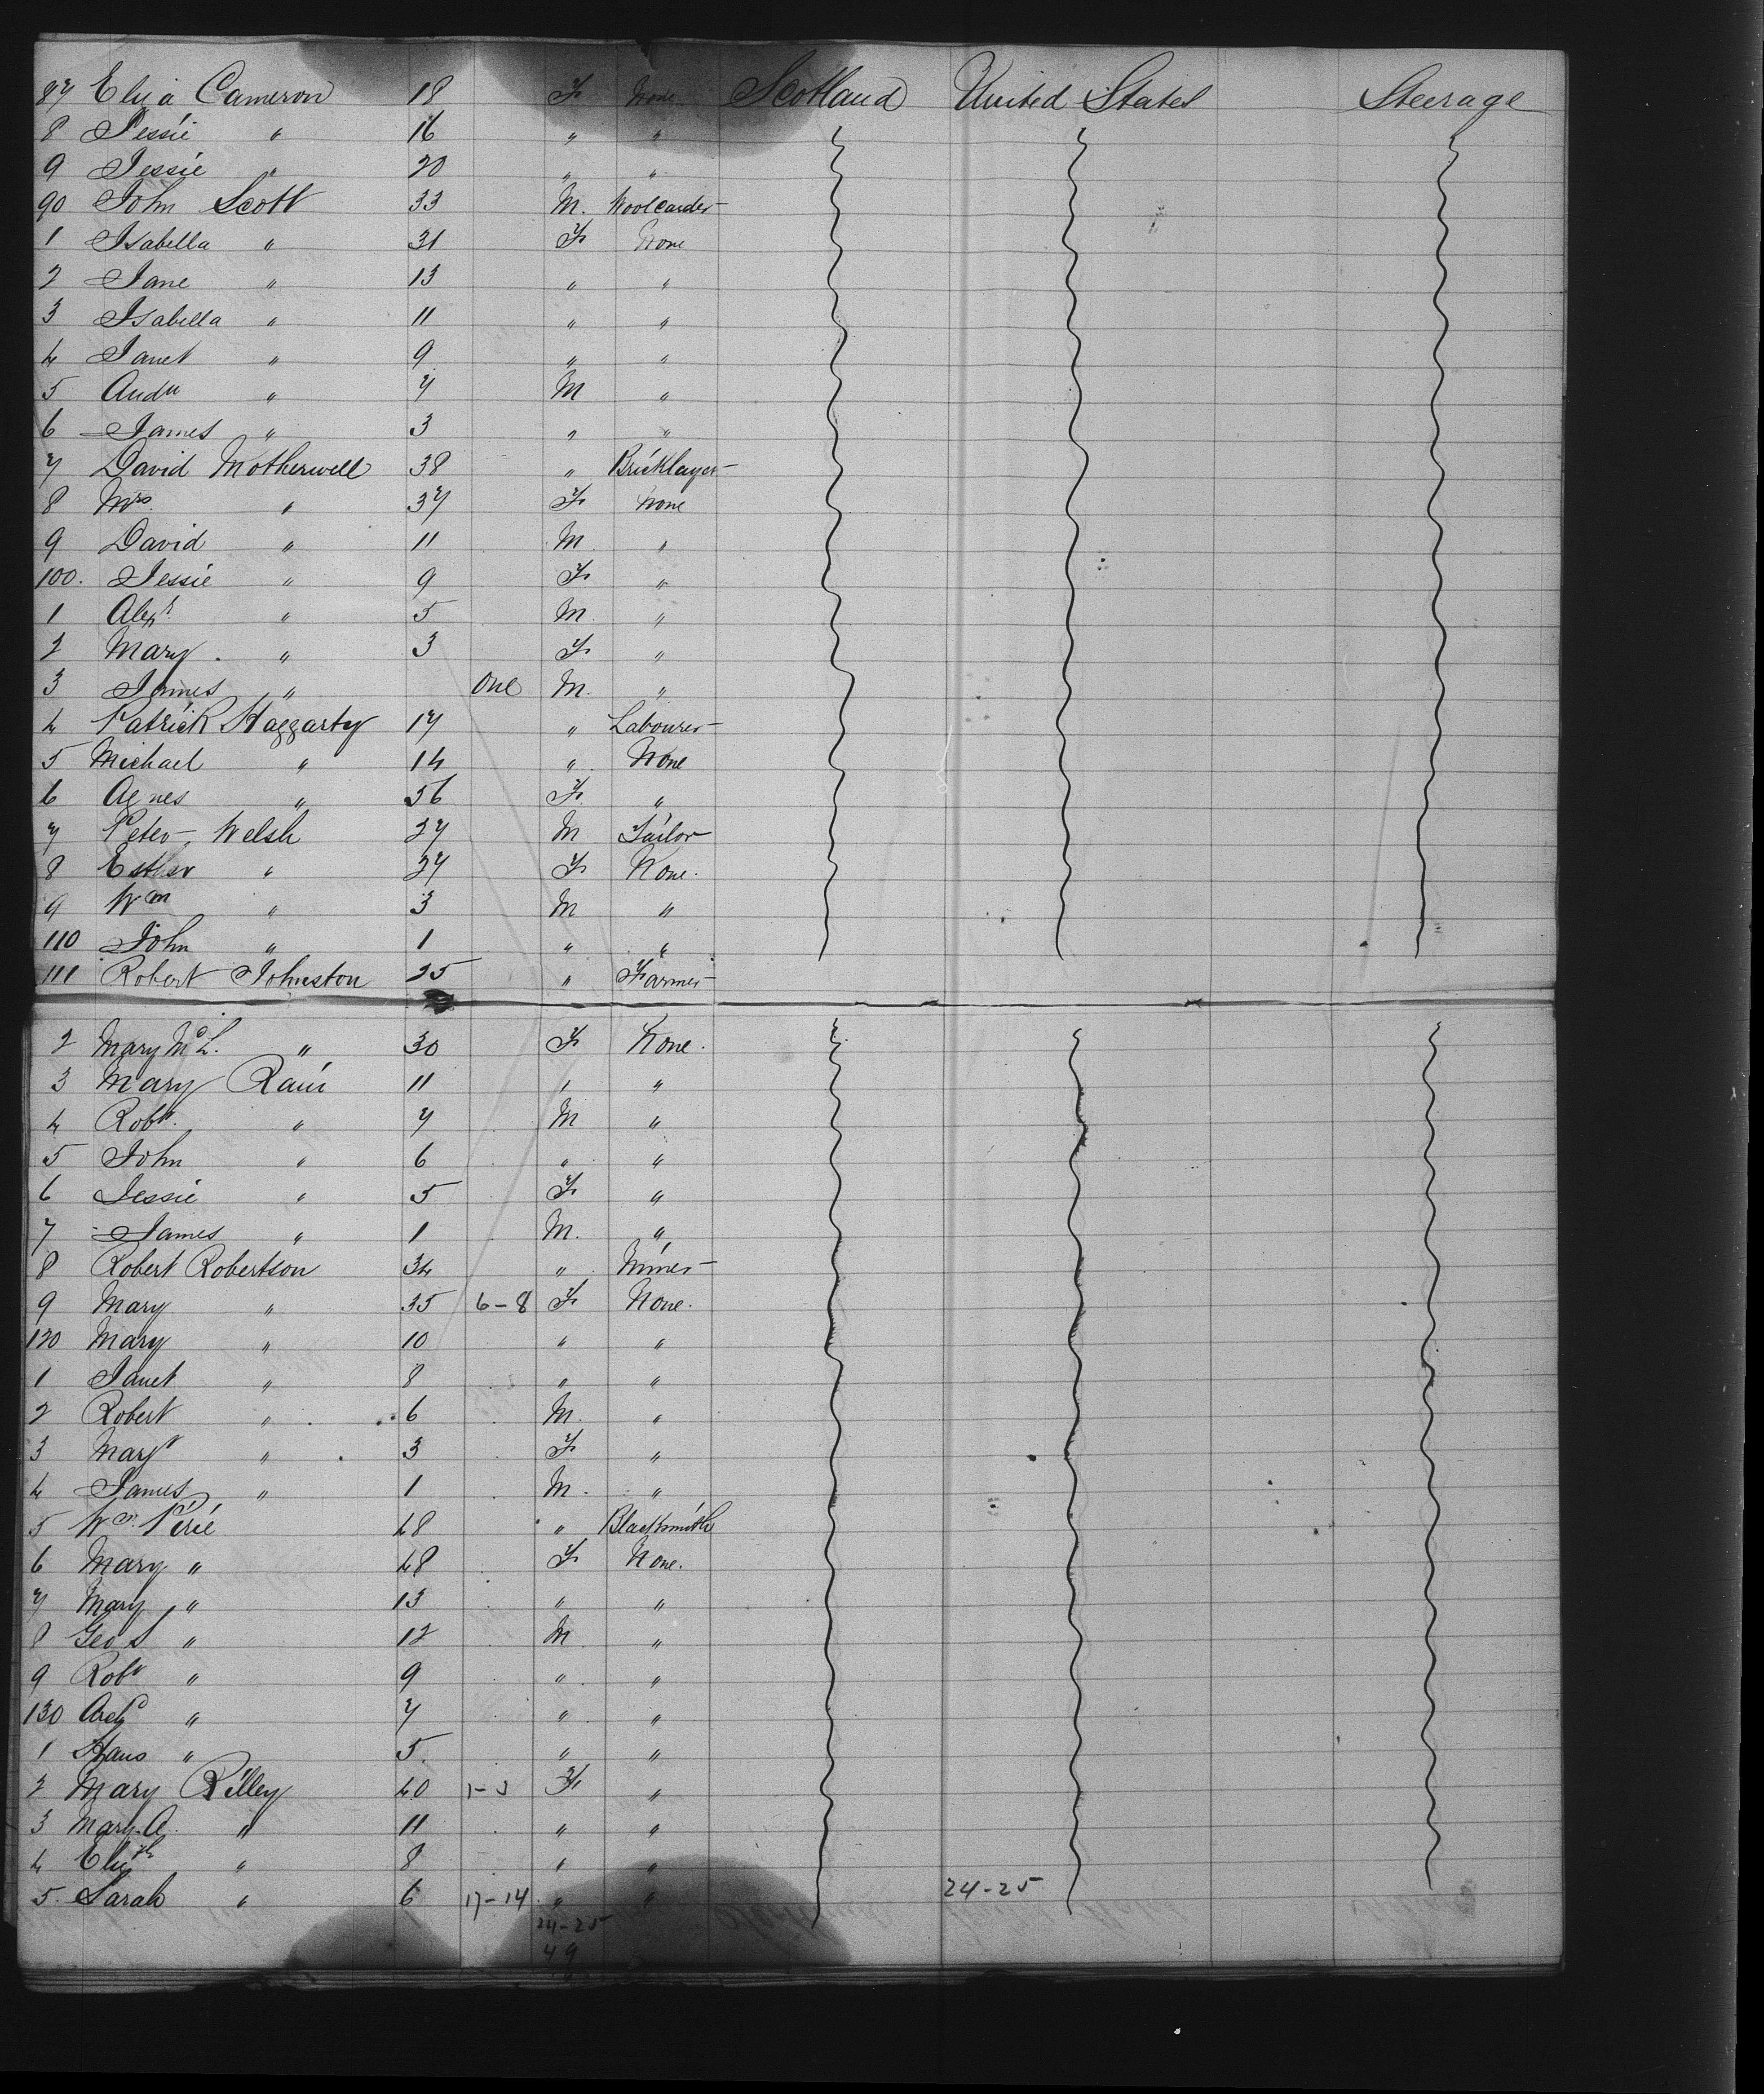 87 Eliza Cameron 18 F None Scotland United States Steerage
8 Jessie " 16 " "
9 Jessie " 20 " "
90 John Scott 33 M. Woolcarder
1 Isabella " 31 F None
2 Jane " 13 " "
3 Isabella " 11 " "
4 Janet " 9 " "
5 Andw " 7 M "
6 James " 3 " "
7 David Motherwell 38 " Bricklayer
8 Mrs. " 37 F None
9 David " 11 M "
100. Jessie " 9 F "
1 Alexr " 5 M "
2 Mary. " 3 F "
3 James " One M. "
4 Patrick Haggarty 17 " Labourer
5 Michael " 14 " None
6 Agnes " 56 F "
7 Peter Welsh 27 M Tailor
8 Esther " 27 F None.
9 Wm " 3 M "
110 John " 1 " "
111 Robert Johnston 25 " Farmer
2 Mary McL. " 30 F None.
3 Mary Rain 11 " "
4 Robt. " 7 M "
5 John " 6 " "
6 Jessie " 5 F "
7 James " 1 M. "
8 Robert Robertson 34 " Miner
9 Mary " 35 6-8 F None.
120 Mary " 10 " "
1 Janet " 8 " "
2 Robert " 6 M. "
3 Mary " 3 F "
4 James " 1 M. "
5 Wm. Pirie 48 " Blacksmith
6 Mary " 48 F None.
7 Mary " 13 " "
8 Geo S " 12 M "
9 Robt " 9 " "
130 Archd " 7 " "
1 Hans " 5. " "
2 Mary Rilley 40 F "
3 Mary A. " 11 " "
4 Elizth " 8 " "
5. Sarah " 6 17-14 " " 24-25
24-25
49